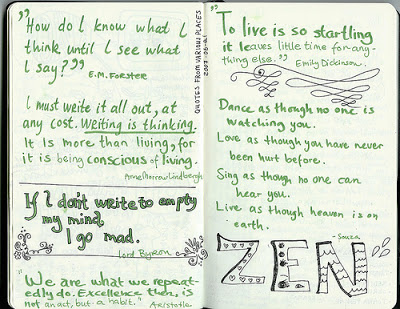 "How do I know what I
think until I see what
I say?"
E.M. FORSTER
I must write it all out, at
any cost. Writing is thinking.
It is more than living, for
it is being conscious of living.
Anne Morrow Lindbergh
If I don't write to empty
my mind,
I go mad.
Lord Byron
"We are what we repeat-
edly do. Excellence then, is
not an act, but a habit." Aristotle
QUOTES FROM VARIOUS PLACES
"To live is so startling
it leaves little time for any-
thing else."
Emily Dickinson.
Dance as though no one is
watching you.
Love as though you have never
been hurt before.
Sing as though no one can
hear you.
Live as though heaven is on
earth.
- Souza
ZEN